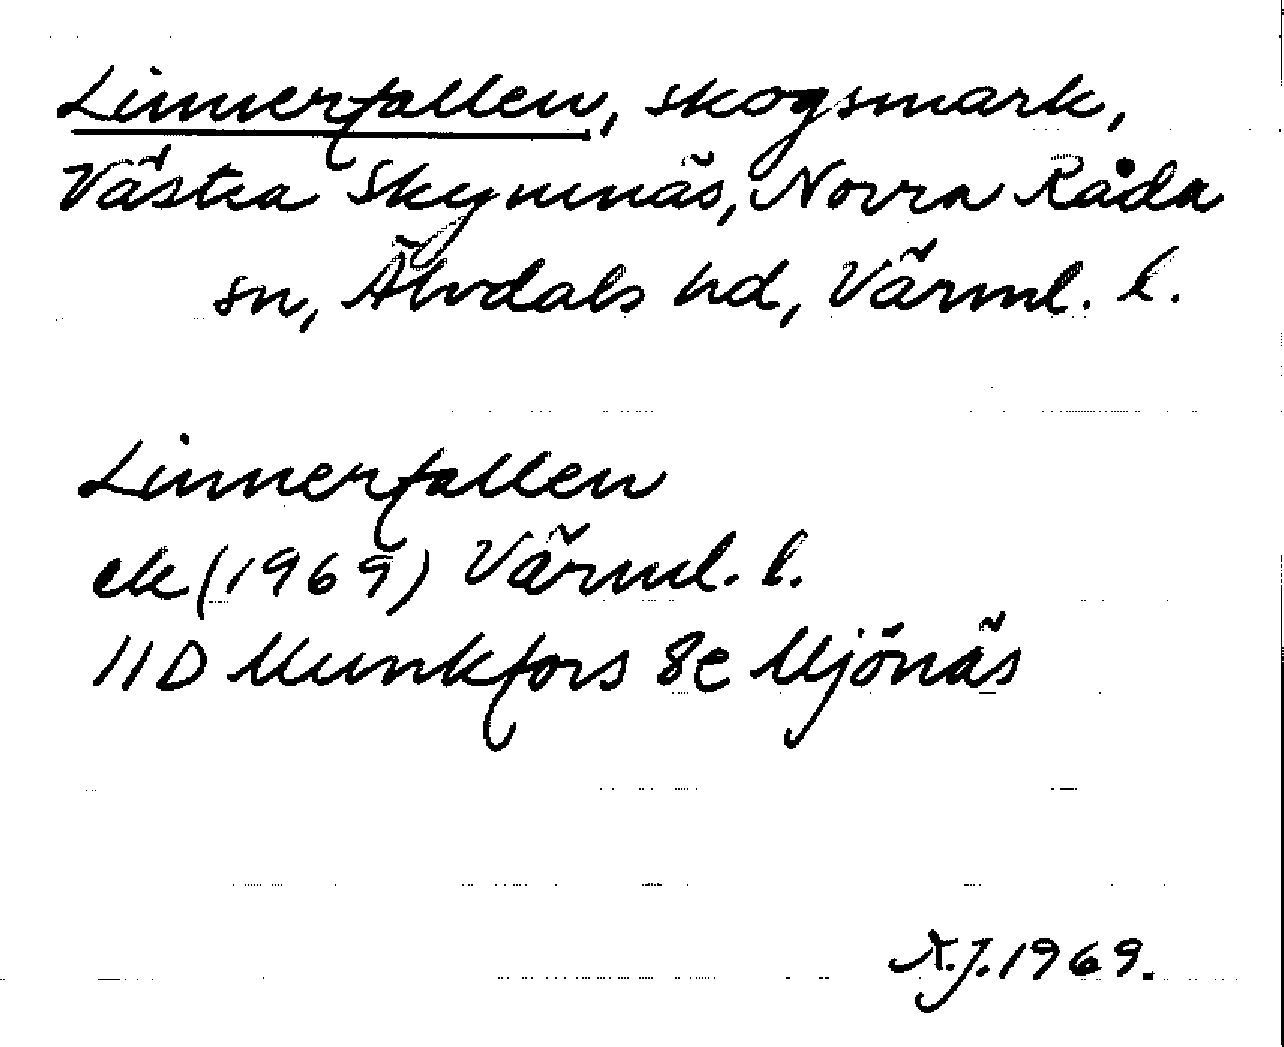 Linnerfallen, skogsmark,
Västra Skymnäs, Norra Råda
sn, Älvdals hd, Värml. l.
Linnerfallen
ek (1969) Värml. l.
11D Munkfors 8e Mjönäs
A.J. 1969.